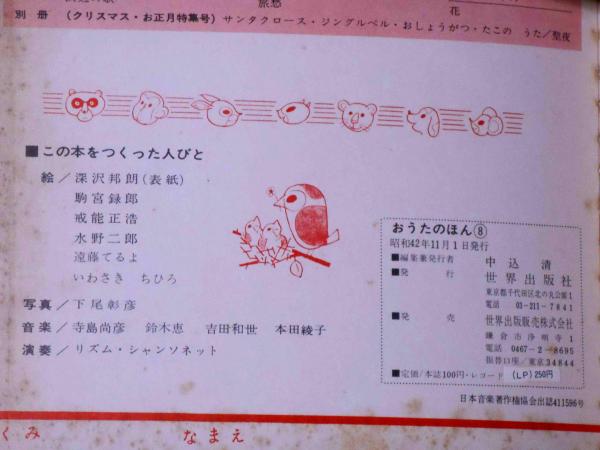 旅愁
花
別冊 (クリスマス・お正月特集号) サンタクロース・ジングルベル・おしょうがつ・たこの うた／聖夜
■この本をつくった人びと
絵／深沢邦朗(表紙)
駒宮録郎
戒能正浩
水野二郎
遠藤てるよ
いわさき ちひろ
写真／下尾彰彦
音楽／寺島尚彦 鈴木恵 吉田和世 本田綾子
演奏／リズム・シャンソネット
おうたのほん⑧
昭和42年11月1日発行
■編集兼発行者 中込 清
■発行 世界出版社
東京都千代田区北の丸公園1
電話 03-211-7841
■発売 世界出版販売株式会社
鎌倉市浄明寺1
電話 0467-2-8695
振替口座／東京34844
■定価／本誌100円・レコード (LP)250円
日本音楽著作権協会出認411596号
くみ なまえ